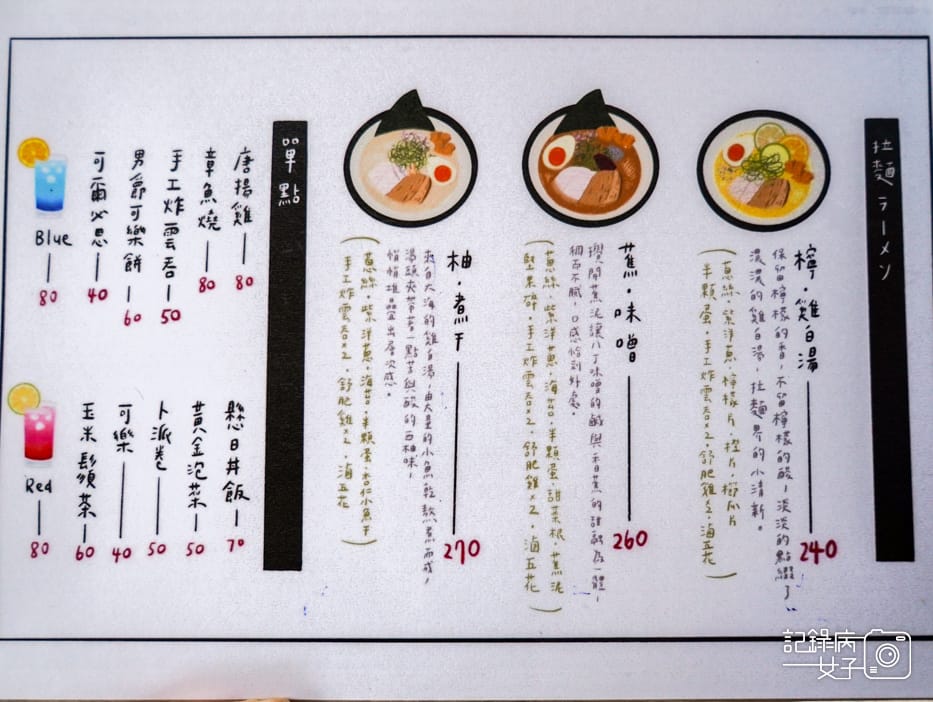 拉麵 ラーメン
檸・雞白湯 240
保留檸檬的香，不留檸檬的酸，淡淡的點綴了
濃濃的雞白湯，拉麵界的小清新。
（蔥絲．紫洋蔥．檸檬片．橙片．櫛瓜片
半顆蛋．手工炸雲吞x2．舒肥雞x2．滷五花）
蕉・味噌 260
攪開蕉泥讓八丁味噌的鹹與香蕉的甜融為一體，
稠而不膩，口感恰到好處。
（蔥絲．紫洋蔥．海苔．半顆蛋．甜菜根．蕉泥
堅果碎．手工炸雲吞x2．舒肥雞x2．滷五花）
柚・煮干 270
來自大海的雞白湯，由大量的小魚乾熬煮而成，
湯頭夾帶著一點苦與酸的西柚味，
悄悄堆疊出層次感。
（蔥絲．紫洋蔥．海苔．半顆蛋．杏仁小魚干
手工炸雲吞x2．舒肥雞x2．滷五花）
單點
唐揚雞 80
章魚燒 80
手工炸雲吞 50
男爵可樂餅 60
可爾必思 40
Blue 80
懸日丼飯 70
黃金泡菜 50
卜派卷 50
可樂 40
玉米鬚茶 60
Red 80
記錄病
女子